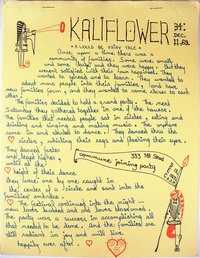 KALIFLOWER
DEC.
• A WOULD BE FAIRY TALE •
Once upon a time there was a
community of families. Some were small
and some larger and they were happy. But they
weren't satisfied with their own happiness. They
wanted to spread and to learn. They wanted to
adopt more people into their families, and have
new families form, and they wanted to come closer to each
The families decided to hold a grand party. The next
Saturday they gathered together in one of the houses -
the families that needed people sat in circles, eating and
drinking and singing and making music. The explorers
came in and started to dance. They danced thru the
circles, whirling their rags and flashing their eyes.
They danced faster
and leapt higher
until at the
height of their dance
commune joining party
they were one by one caught in
the center of a circle and sank into the
families' embrace.
The festivities continued into the night —
new loves budded and old loves blossomed.
The party was a success in accomplishing all
that needed to be done. And the families are
still radiant in joy and will live
happily ever after.